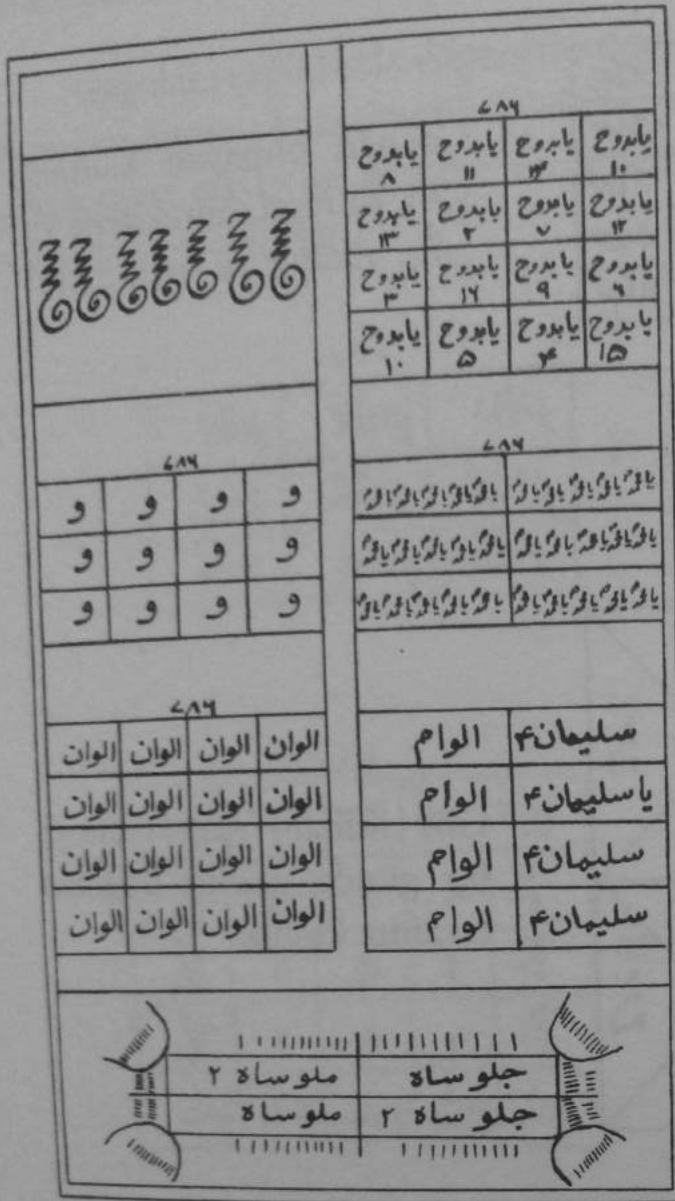 ۷۸۶
یابدوح یابروح یابدوح یابدوح
۱۰ ۱۴ ۱۱ ۸
یابدوح یابدوح یابدوح یابدوح
۱۲ ۷ ۲ ۱۳
یابدوح یابدوح یابدوح یابدوح
۶ ۹ ۱۶ ۳
یابدوح یابدوح یابدوح یابدوح
۱۵ ۴ ۵ ۱۰
۷۸۶
سلیمان۴ الواحم
یاسلیمان۴ الواحم
سلیمان۴ الواحم
سلیمان۴ الواحم
۷۸۶
و و و و
و و و و
و و و و
۷۸۶
الوان الوان الوان الوان
الوان الوان الوان الوان
الوان الوان الوان الوان
الوان الوان الوان الوان
جلوساة ملوساة ۲
جلوساة ۲ ملوساة